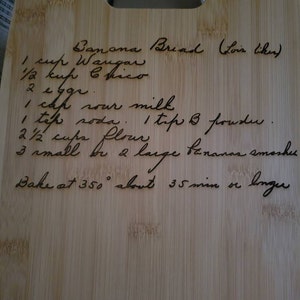 Banana Bread (Lois likes)
1 cup Waugar
1/2 cup Crisco
2 eggs.
1 cup sour milk
1 tsp soda. 1 tsp B powder.
2 1/2 cups flour
3 small or 2 large bananas smashed
Bake at 350° about 35 min or longer